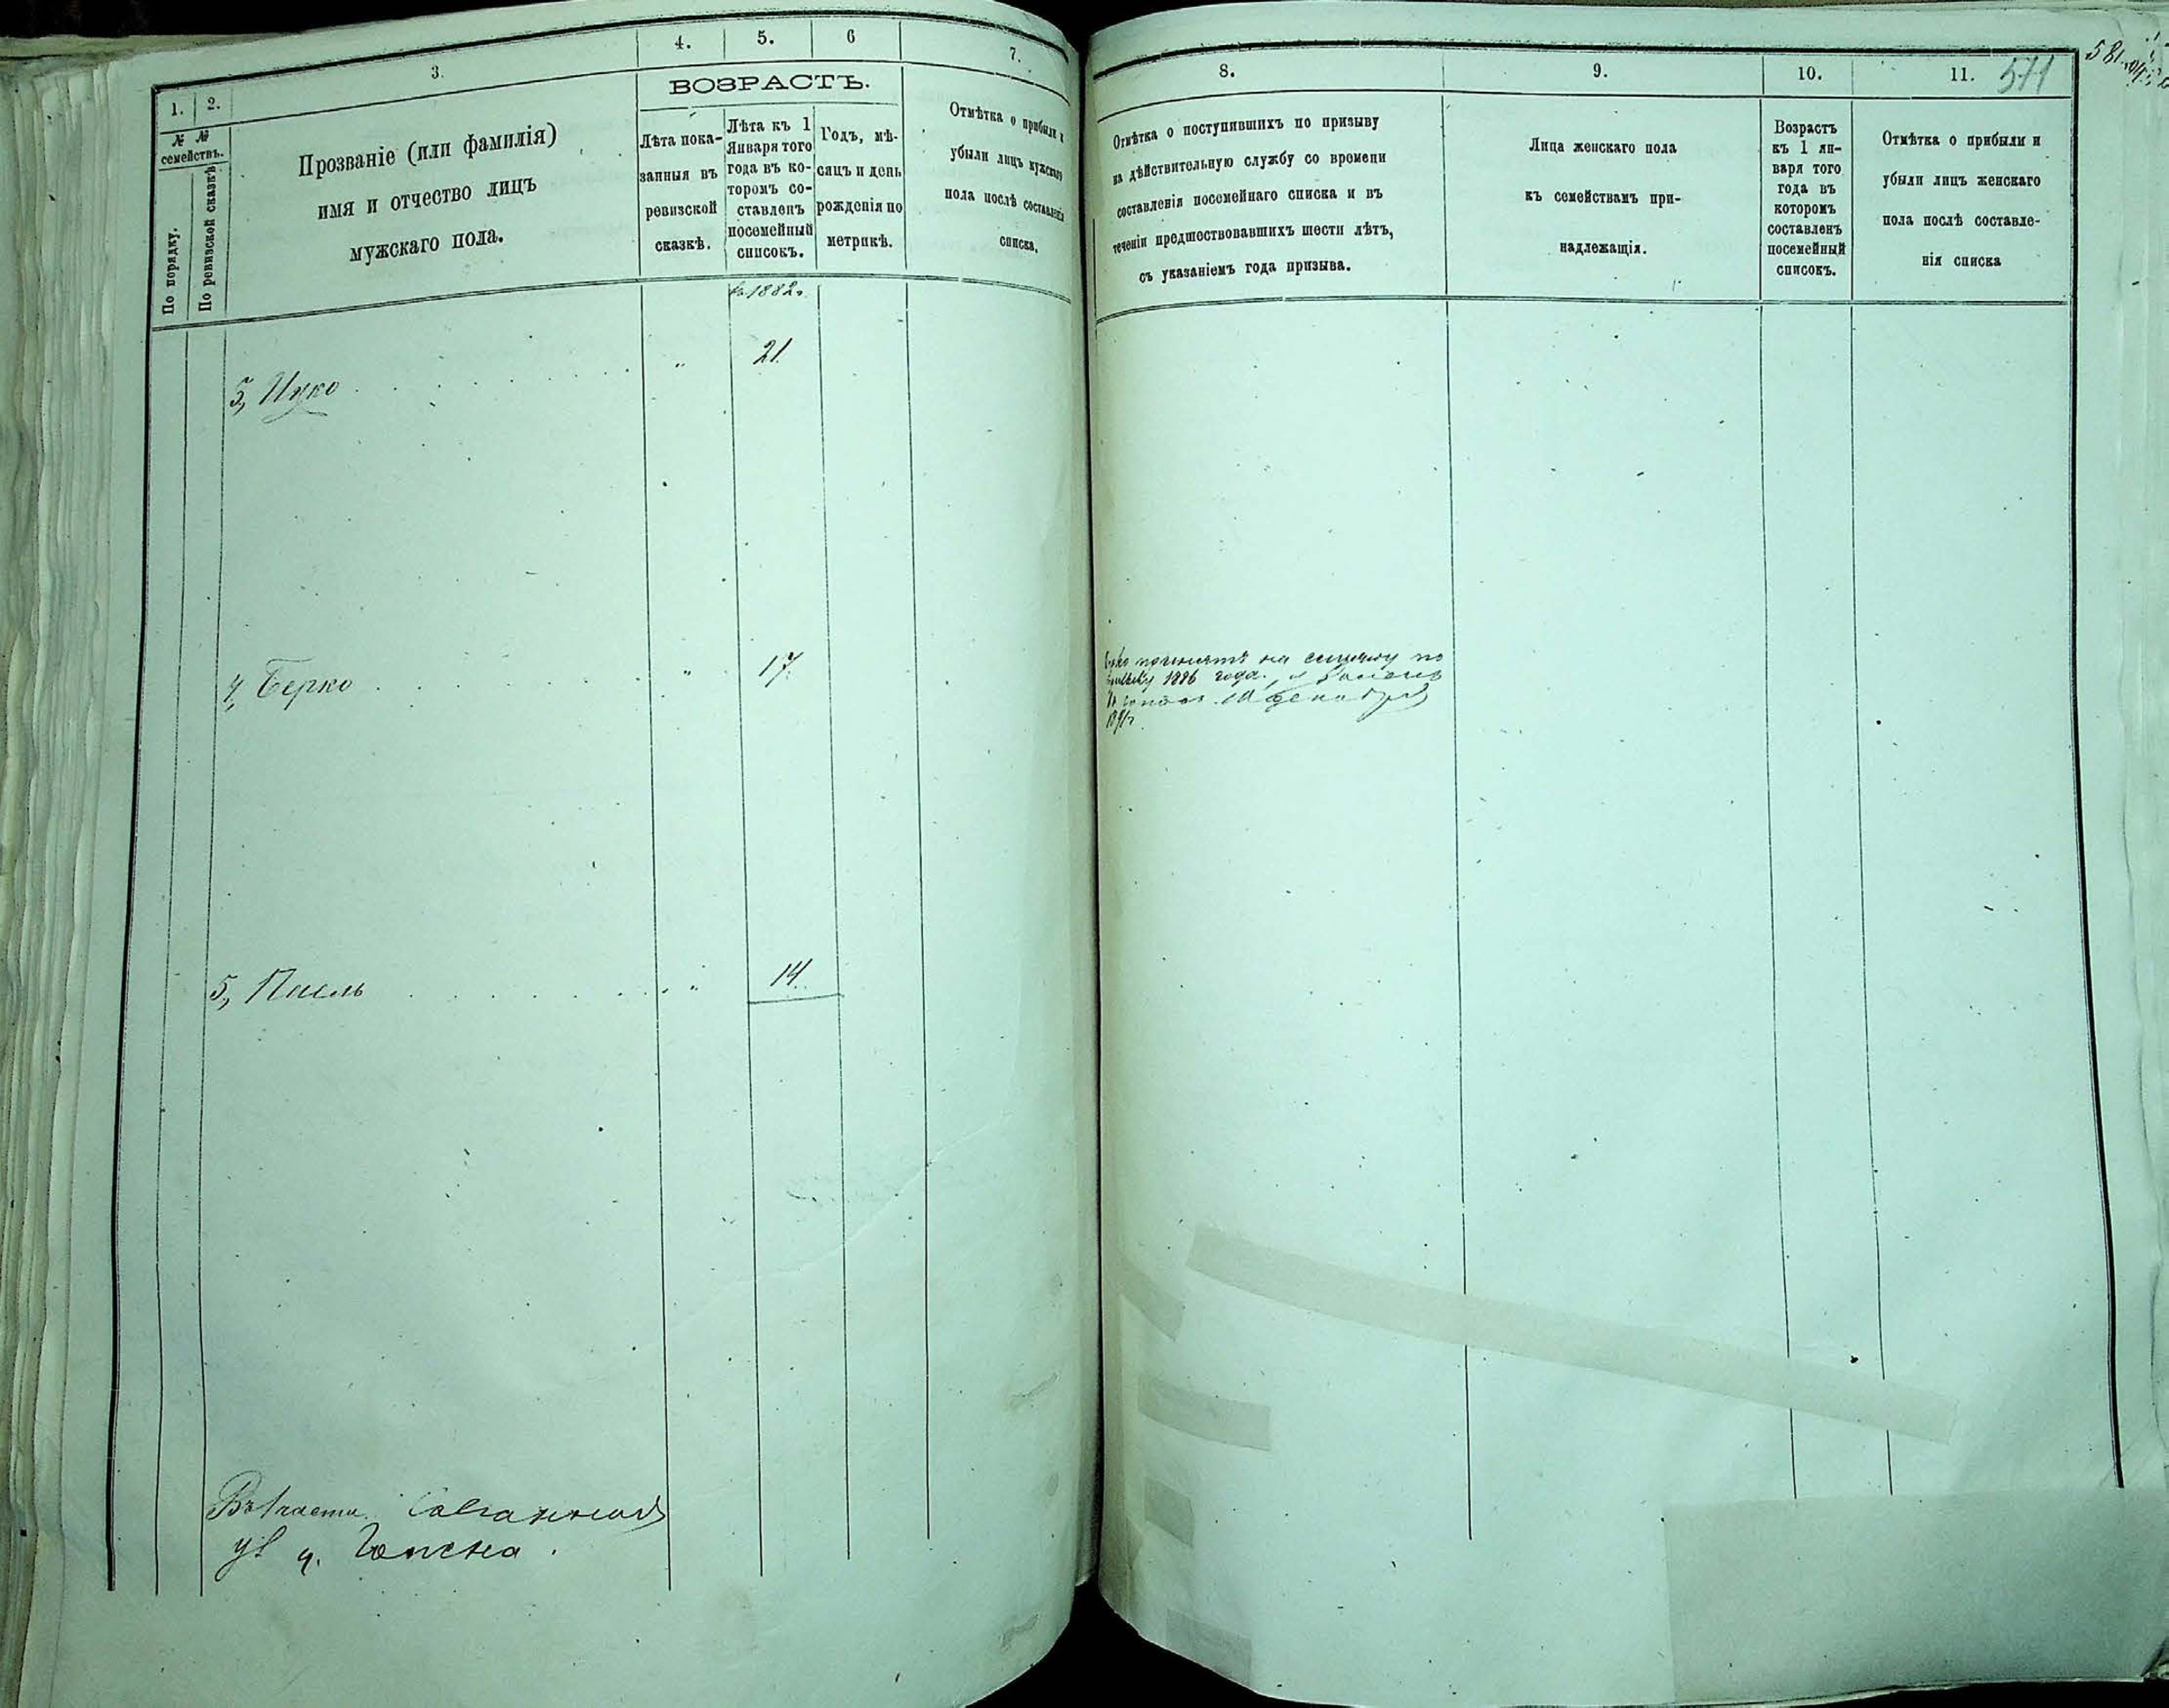 1.
2.
3.
4.
5.
6
7.
№ №
семействъ.
По порядку.
По ревизской сказкѣ
Прозваніе (или фамилія)
имя и отчество лицъ
мужскаго пола.
ВОЗРАСТЪ.
Лѣта пока-
занныя въ
ревизской
сказкѣ.
Лѣта къ 1
Января того
года въ ко-
торомъ со-
ставленъ
посемейный
списокъ.
Годъ, мѣ-
сяцъ и день
рожденія по
метрикѣ.
Отмѣтка о прибыли и
убыли лицъ мужскаго
пола послѣ составленія
списка.
1882
21.
4, Берко
" 17.
5,
" 14.
8.
9.
10.
11.
571
581
Отмѣтка о поступившихъ по призыву
на дѣйствительную службу со времени
составленія посемейнаго списка и въ
теченіи предшествовавшихъ шести лѣтъ,
съ указаніемъ года призыва.
Лица женскаго пола
къ семействамъ при-
надлежащія.
Возрастъ
къ 1 ян-
варя того
года въ
которомъ
составленъ
посемейный
списокъ.
Отмѣтка о прибыли и
убыли лицъ женскаго
пола послѣ составле-
нія списка
принятъ на службу по
1886 года, и